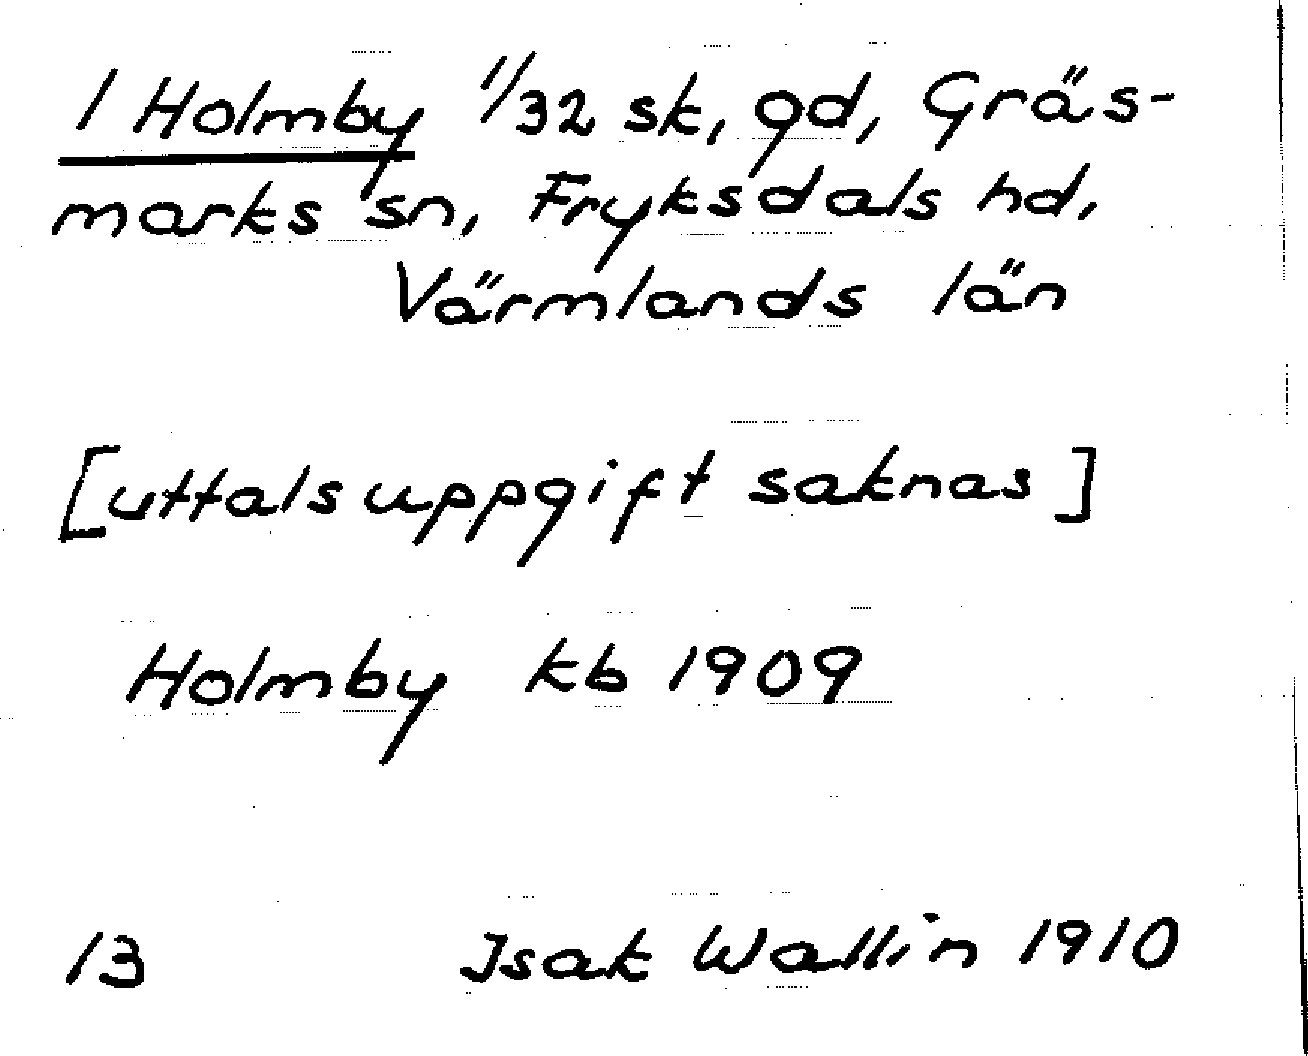 1 Holmby 1/32 sk, gd, Gräs-
marks sn, Fryksdals hd,
Värmlands län
[uttalsuppgift saknas]
Holmby kb 1909
13 Isak Wallin 1910